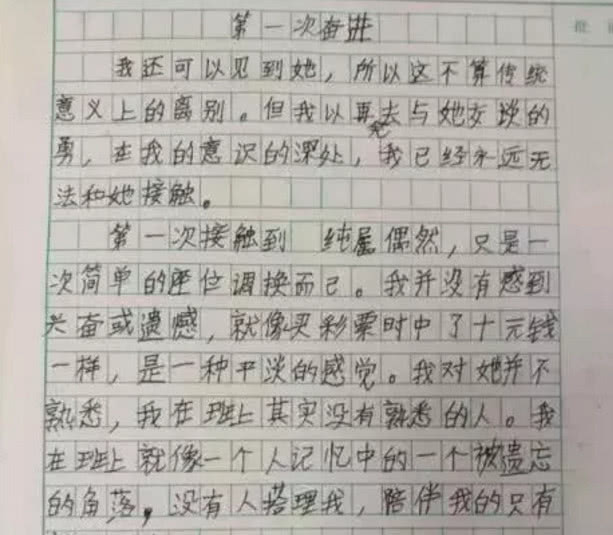 第一次奋进
我还可以见到她，所以这不算传统
意义上的离别。但我以再无去与她交谈的
勇，在我的意识的深处，我已经永远无
法和她接触。
第一次接触到 纯属偶然，只是一
次简单的座位调换而已。我并没有感到
兴奋或遗憾，就像买彩票时中了十元钱
一样，是一种平淡的感觉。我对她并不
熟悉，我在班上其实没有熟悉的人。我
在班上就像一个人记忆中的一个被遗忘
的角落，没有人搭理我，陪伴我的只有